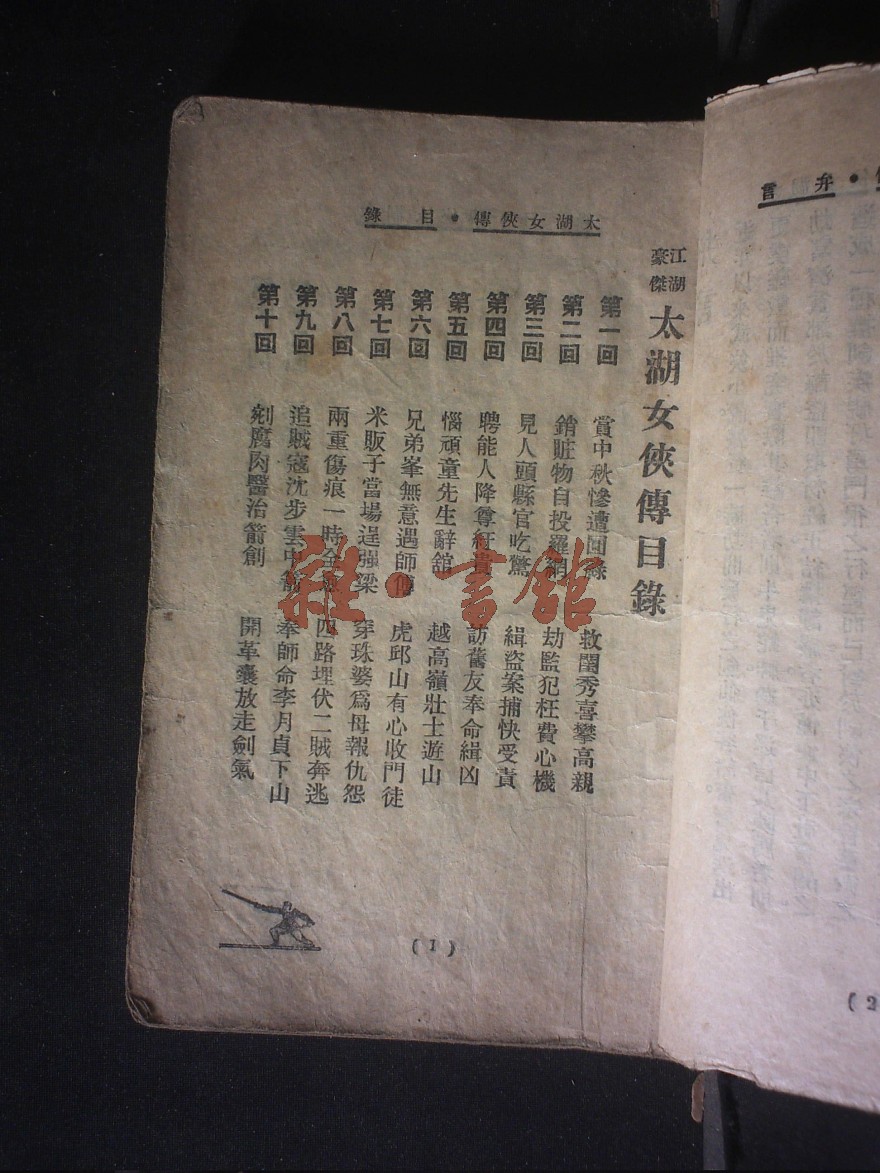 太湖女俠傳・目錄
江湖豪傑 太湖女俠傳目錄
第一回 賞中秋慘遭回祿 救閨秀喜攀高親
第二回 銷賍物自投羅網 劫監犯枉費心機
第三回 見人頭縣官吃驚 緝盜案捕快受責
第四回 聘能人降尊紆貴 訪舊友奉命緝凶
第五回 惱頑童先生辭舘 越高嶺壯士遊山
第六回 兄弟峯無意遇師傅 虎邱山有心收門徒
第七回 米販子當場逞强梁 穿珠婆爲母報仇怨
第八回 兩重傷痕一時全 四路埋伏二賊奔逃
第九回 追賊寇沈步雲中箭 奉師命李月貞下山
第十回 剜腐肉醫治箭創 開革囊放走劍氣
(1)
弁言
(2
雜・書館